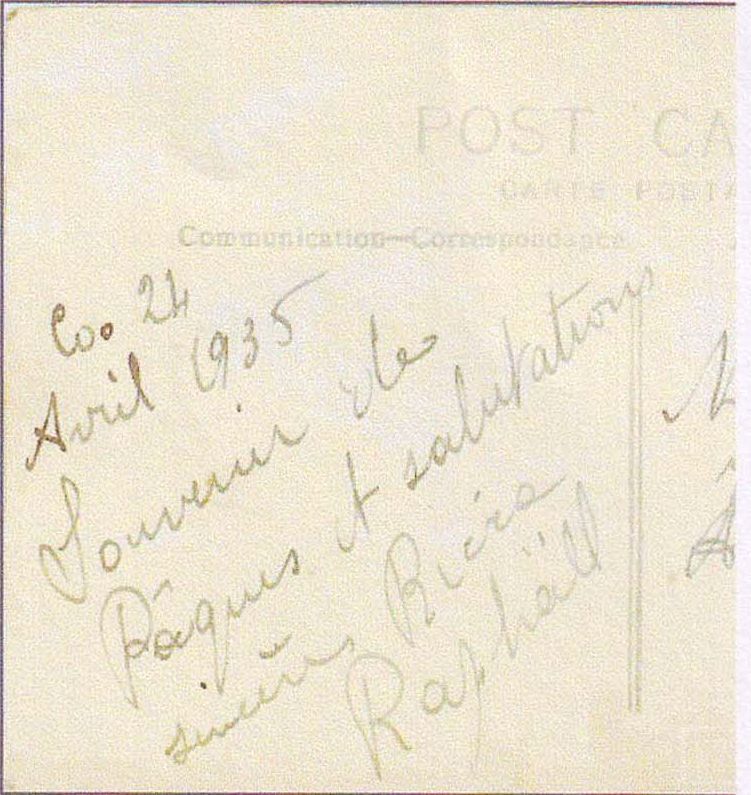 POST CA
CARTE POSTA
Communication—Correspondance
Coo 24
Avril 1935
Souvenir de
Pâques et salutations
sincères Riera
Raphaëll